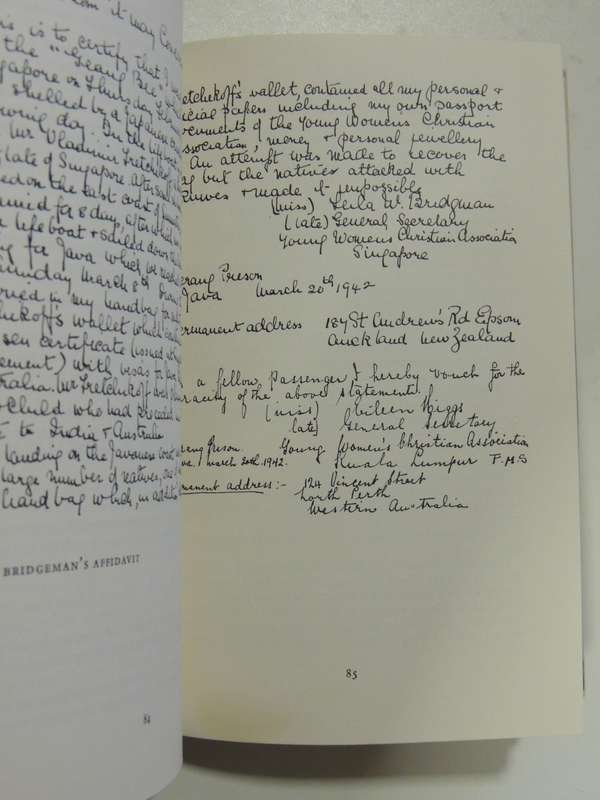 is is to certify that I
the "Giang Bee"
gapore on Thursday
shelled by a Japanese
owing day... In the lifeboat
Mr Vladimir Tretchikoff
(late of Singapore. After
ed on the East coast of
ined for 8 days, after which
a lifeboat & sailed down the
for Java which we reached
Sunday March 8th
in my handbag
chikoff's wallet which
certificate (issued
ement) with visas to
tralia. Mr Tretchikoff
child who had proceeded
to India & Australia
landing on the Javanese coast
large number of natives,
hand bag which, in addition
BRIDGEMAN'S AFFIDAVIT
84
retchikoff's wallet, contained all my personal &
icial papers including my own passport
ocuments of the Young Womens Christian
ssociation, money & personal jewellery
An attempt was made to recover the
but the natives attacked with
knives & made it impossible
(Miss) Leila W. Bridgman
(late) General Secretary
Young Womens Christian Association
Singapore
erang Prison
Java March 20th 1942
ermanent address 187 St Andrew's Rd Epsom
Auckland New Zealand
a fellow passenger I hereby vouch for the
veracity of the above statement.
(Miss) Eileen Higgs
late) General Secretary
rang Prison. Young Women's Christian Association
March 20th 1942. Kuala Lumpur F.M.S
manent address:- 124 Vincent Street
North Perth
Western Australia
85